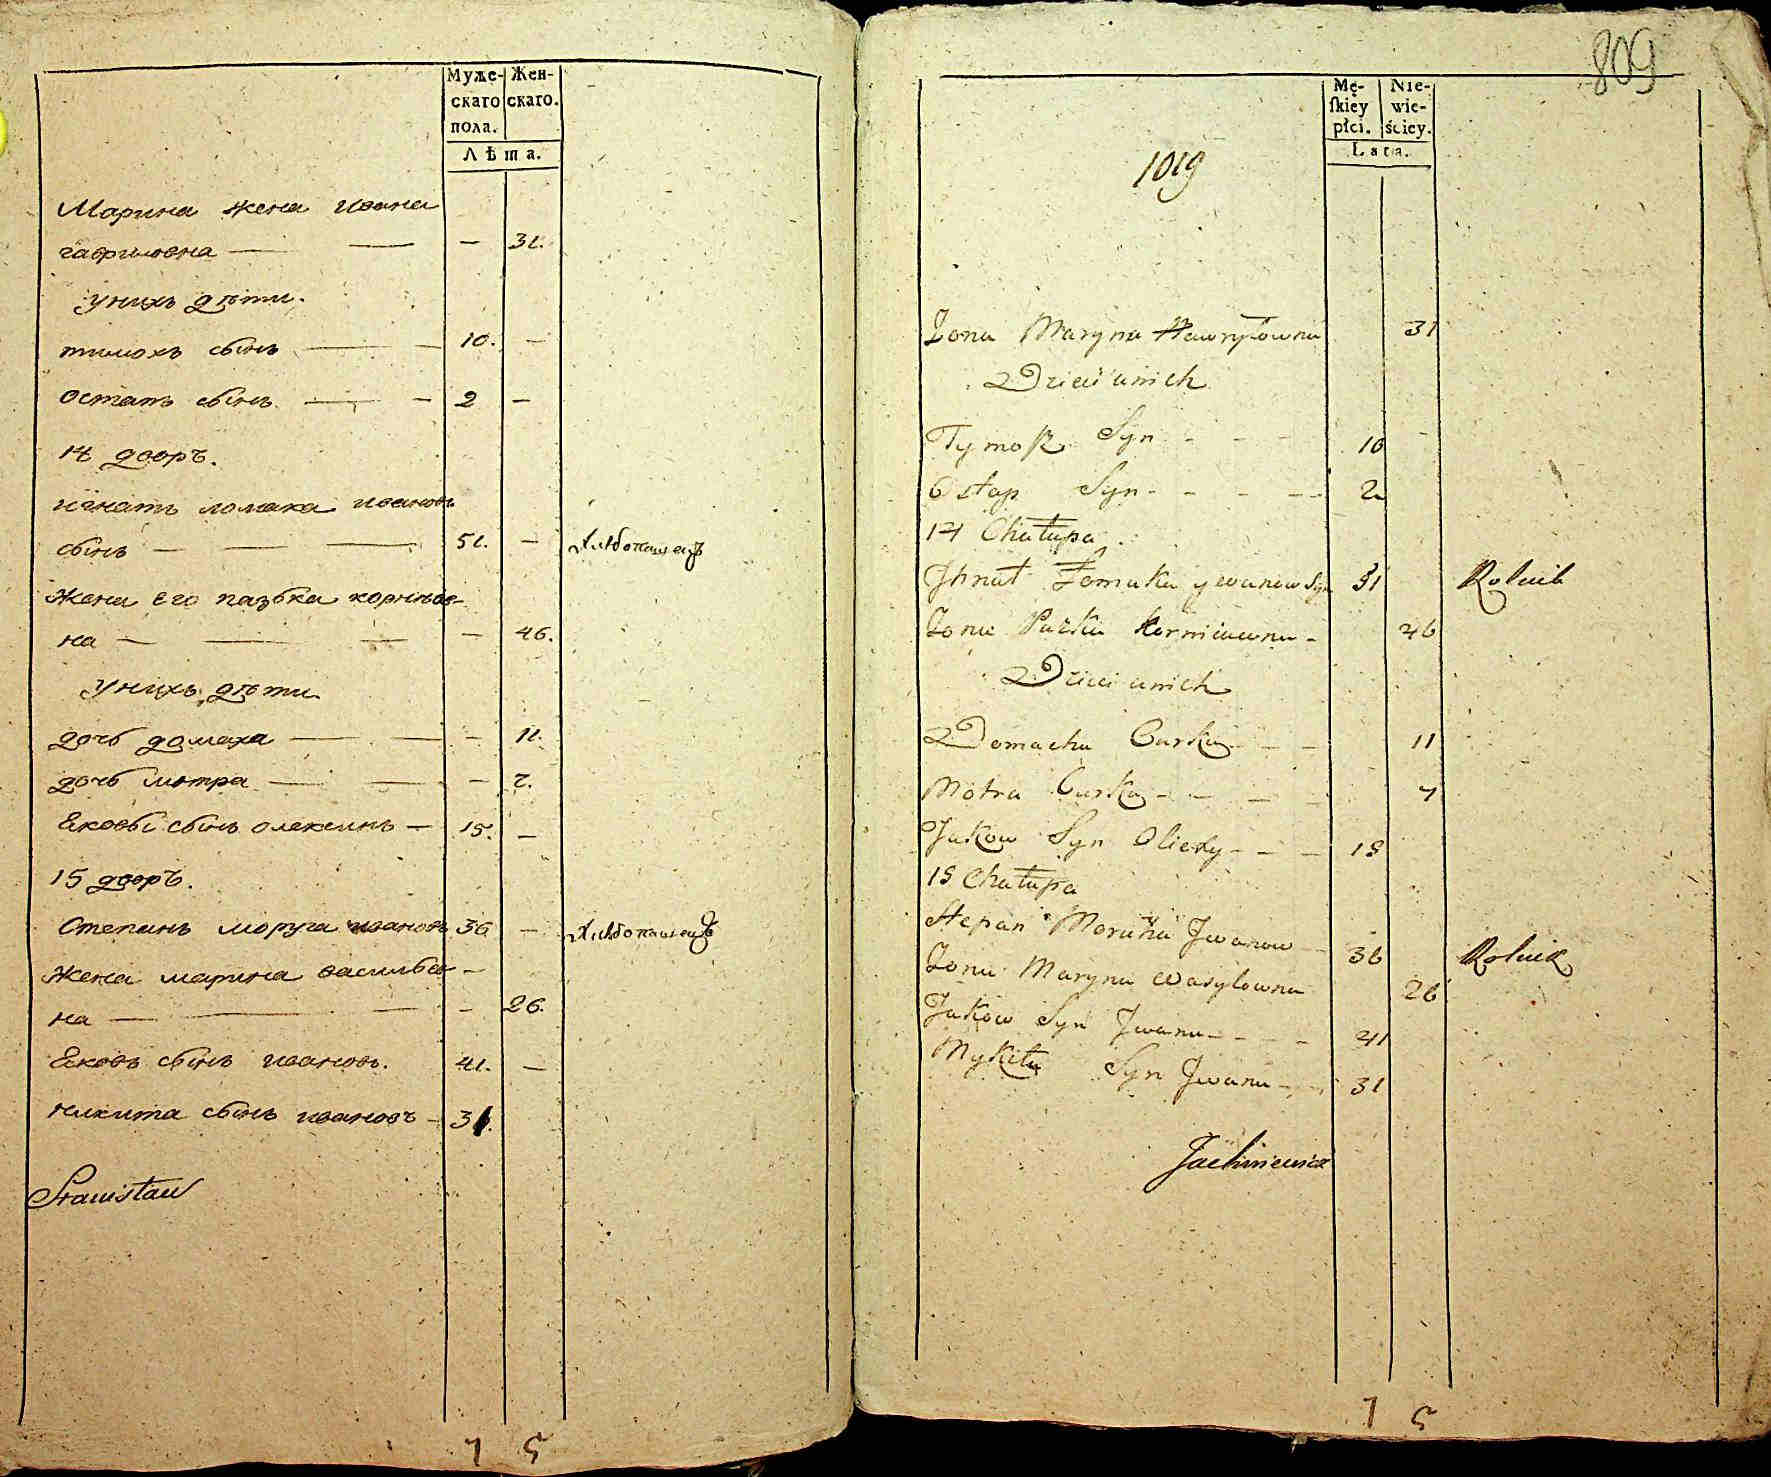 Муже-
скаго
пола.
Жен-
скаго.
Лѣта.
Марина жена ивана
гавриловна — — — 31.
унихъ дѣти.
тимохъ сынъ — — 10. —
остапъ сынъ — — 2 —
14 дворъ.
игнатъ ломака ивановъ
сынъ — — — 51. — Хлѣбопашецъ
жена его пазька корнѣев-
на — — — — 46.
унихъ дѣти
дочь домаха — — — 11.
дочь мотра — — — 7.
Яковъ сынъ олексинъ — 15. —
15 дворъ.
Степанъ моруга ивановъ 36 — Хлѣбопашецъ
жена марина васильев-
на — — — — 26.
Яковъ сынъ ивановъ. 41. —
никита сынъ ивановъ — 31.
Stanisław
809
Mę-
ſkiey
płci.
Nie-
wie-
ściey.
Lata.
1019
Żona Maryna Hawryłowna 31
Dzieci unich
Tymosz Syn - - - 10 -
Ostap Syn - - - - 2
14 Chałupa
Jhnat Łomaka ywanow Syn 51 Rolnik
Żona Pazka Korniiewna - 46
Dzieci unich
Domacha Curka - - - 11
Motra Curka - - - - 7
Jakow Syn Olexy - - - 15
15 Chałupa
Stepan Moruha Jwanow - 36 Rolnik
Żona Maryna Wasylowna 26
Jakow Syn Jwana - - - - 41
Mykita Syn Jwana - - 31
Jachimiewicz
7 5
7 5